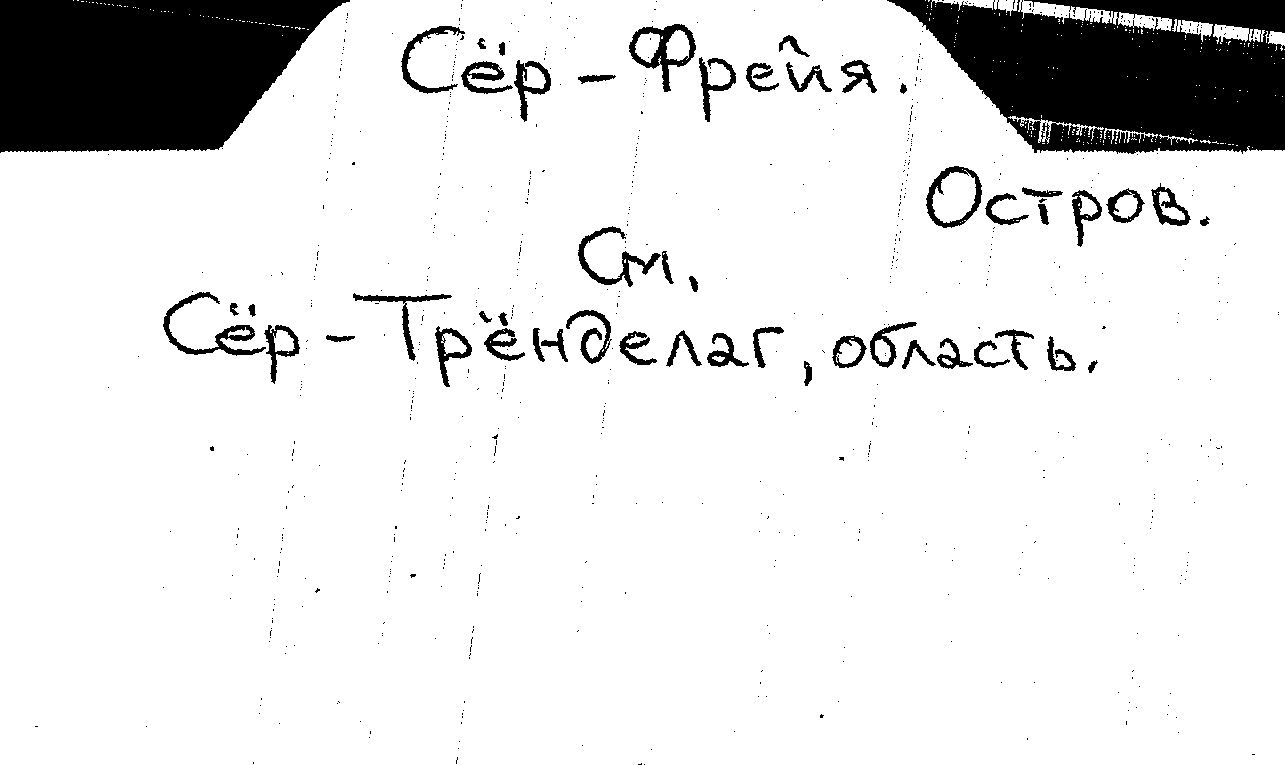 Сёр - Фрейя.
Остров.
См.
Сёр - Трёнделаг, область.